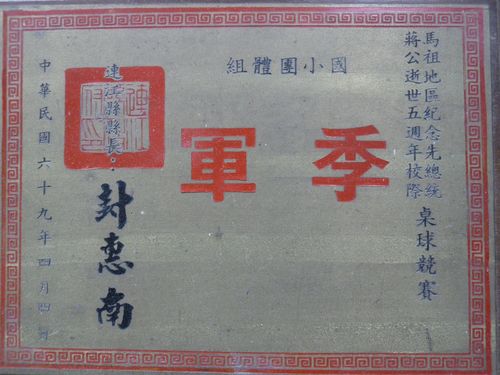 馬祖地區紀念先總統
蔣公逝世五週年校際
桌球競賽
國小團體組
季軍
連江縣縣長
封惠南
中華民國六十九年四月四日